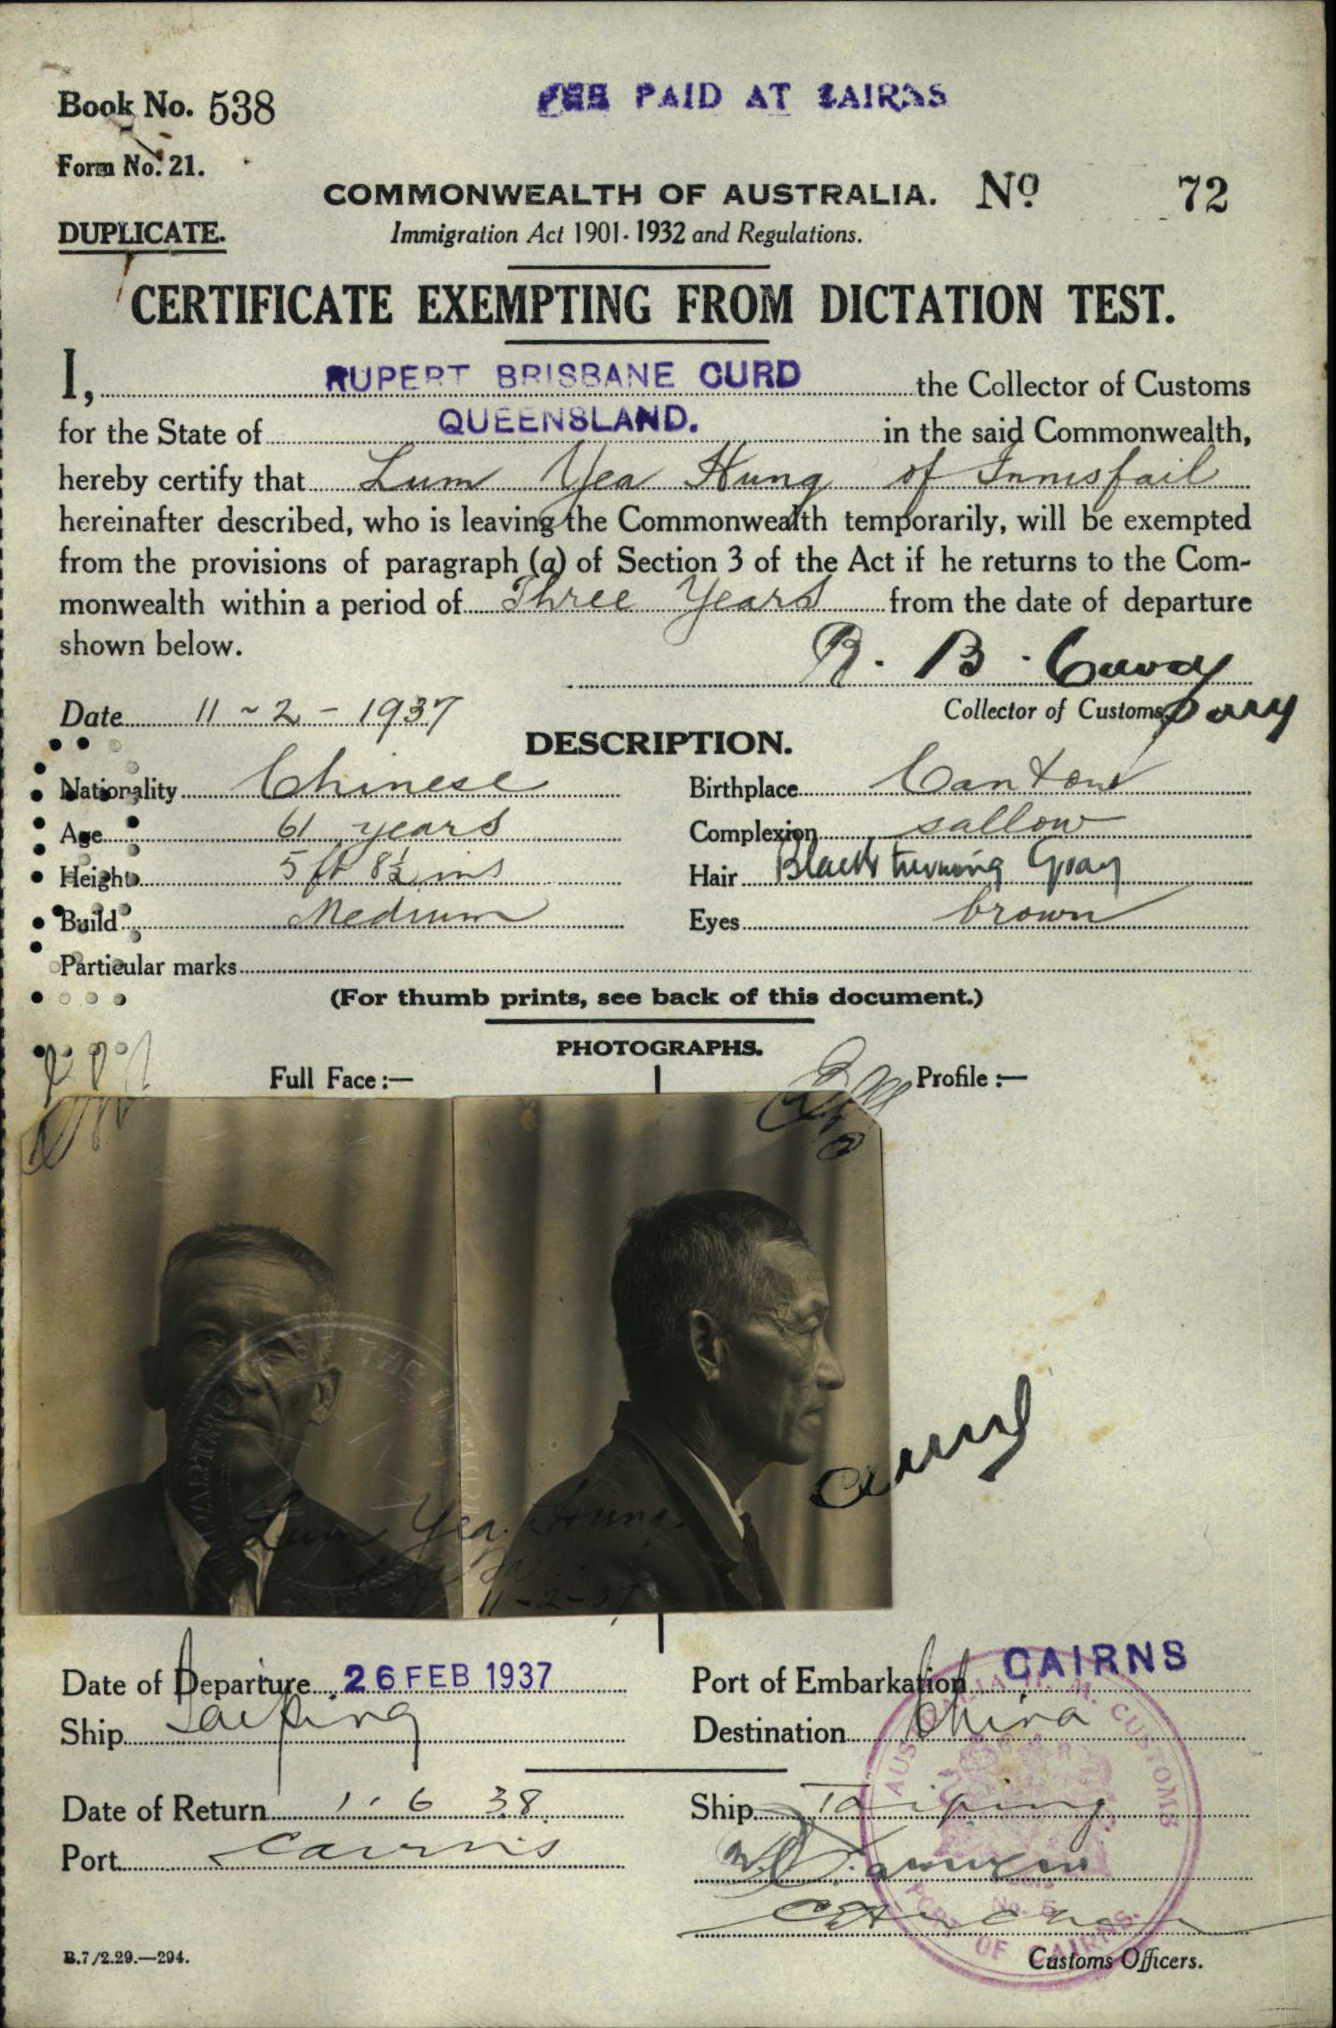 Book No. 538
FEE PAID AT CAIRNS
Form No. 21.
COMMONWEALTH OF AUSTRALIA. No 72
DUPLICATE.
Immigration Act 1901-1932 and Regulations.
CERTIFICATE EXEMPTING FROM DICTATION TEST.
I, RUPERT BRISBANE CURD the Collector of Customs
for the State of QUEENSLAND. in the said Commonwealth,
hereby certify that Lum Yea Hung of Innisfail
hereinafter described, who is leaving the Commonwealth temporarily, will be exempted
from the provisions of paragraph (a) of Section 3 of the Act if he returns to the Com-
monwealth within a period of Three Years from the date of departure
shown below.
R. B. Curd
Date 11-2-1937
Collector of Customs
DESCRIPTION.
Nationality Chinese
Birthplace Canton
Age 61 years
Complexion sallow
Height 5 ft 8½ ins
Hair Black turning Gray
Build Medium
Eyes brown
Particular marks
(For thumb prints, see back of this document.)
PHOTOGRAPHS.
Full Face :—
Profile :—
Lum Yea Houng
11-2-37
Date of Departure 26 FEB 1937
Port of Embarkation CAIRNS
Ship Taiping
Destination China
Date of Return 1.6 38.
Ship Taiping
Port Cairns
AUSTRALIA H.M. CUSTOMS
No. 5
PORT OF CAIRNS.
B.7/2.29.—294.
Customs Officers.